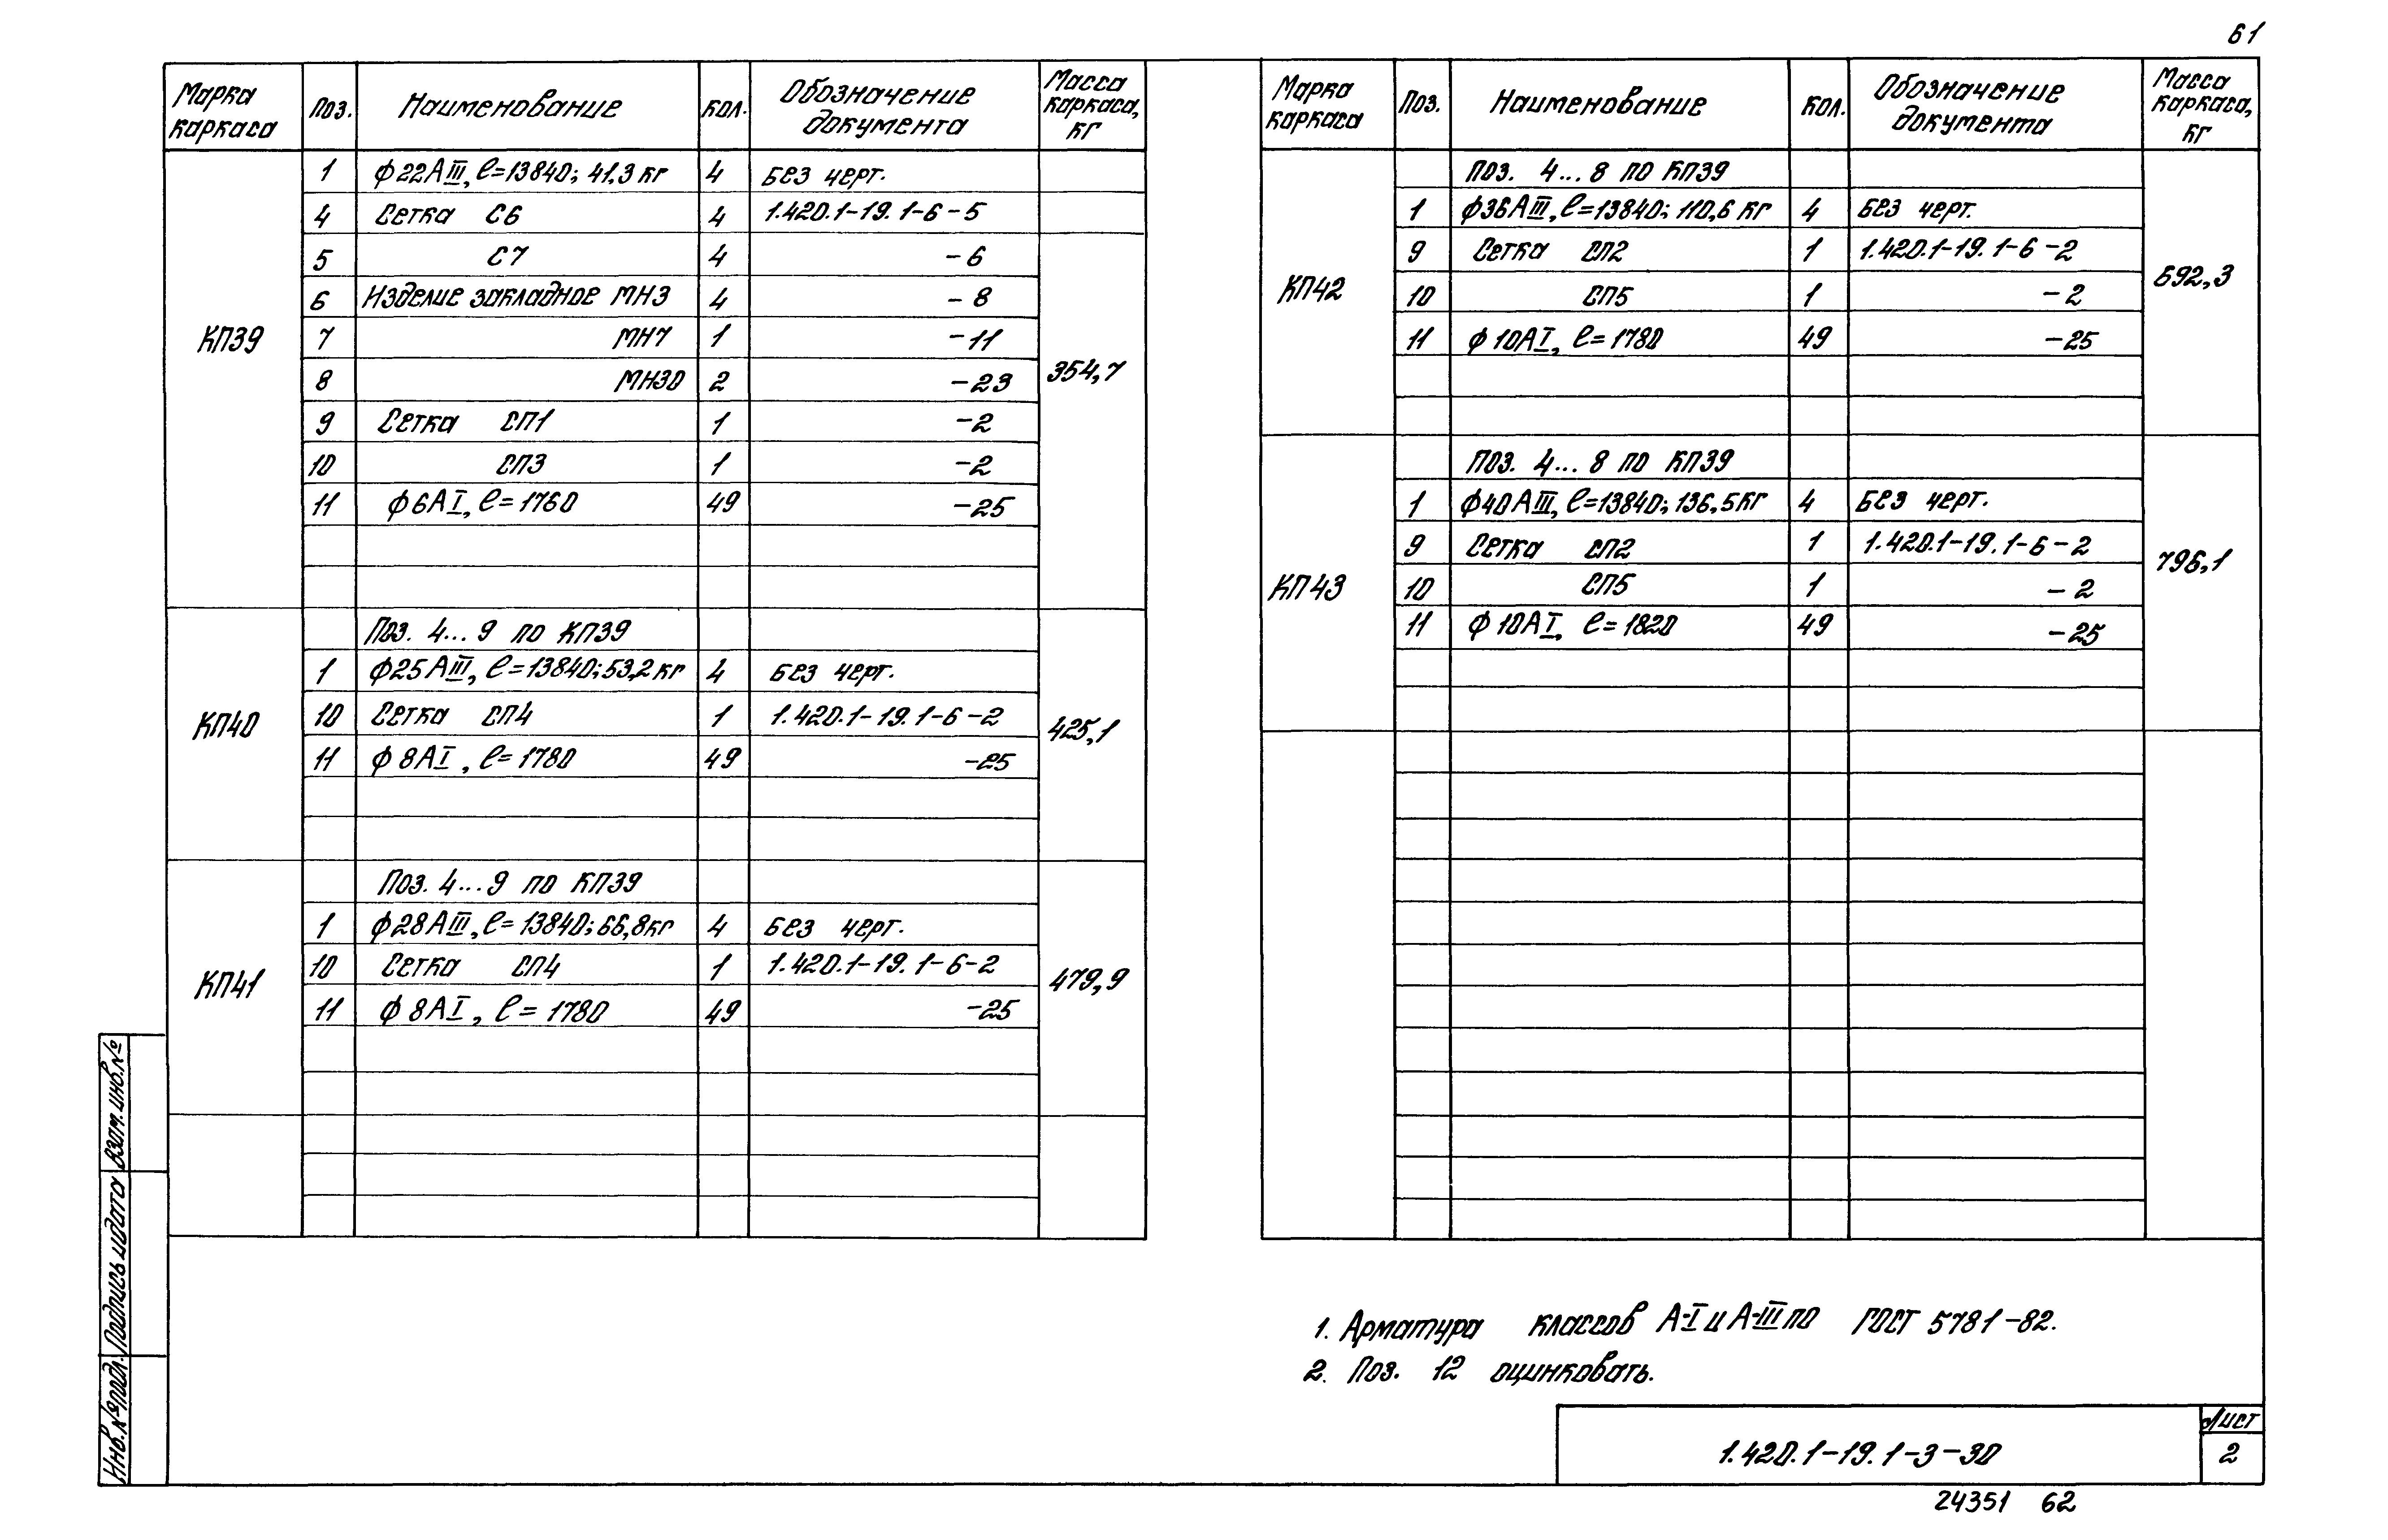 61
Марка каркаса Поз. Наименование Кол. Обозначение документа Масса каркаса, кг
КП39 354,7
1 ϕ22АIII, ℓ=13840; 41,3 кг 4 Без черт.
4 Сетка С6 4 1.420.1-19.1-6-5
5 С7 4 -6
6 Изделие закладное МН3 4 -8
7 МН7 1 -11
8 МН30 2 -23
9 Сетка СП1 1 -2
10 СП3 1 -2
11 ϕ6АI, ℓ=1760 49 -25
КП40 425,1
Поз. 4...9 по КП39
1 ϕ25АIII, ℓ=13840; 53,2 кг 4 Без черт.
10 Сетка СП4 1 1.420.1-19.1-6-2
11 ϕ8АI, ℓ=1780 49 -25
КП41 479,9
Поз. 4...9 по КП39
1 ϕ28АIII, ℓ=13840; 66,8кг 4 Без черт.
10 Сетка СП4 1 1.420.1-19.1-6-2
11 ϕ8АI, ℓ=1780 49 -25
Марка каркаса Поз. Наименование Кол. Обозначение документа Масса каркаса, кг
КП42 692,3
Поз. 4...8 по КП39
1 ϕ36АIII, ℓ=13840; 110,6 кг 4 Без черт.
9 Сетка СП2 1 1.420.1-19.1-6-2
10 СП5 1 -2
11 ϕ10АI, ℓ=1780 49 -25
КП43 796,1
Поз. 4...8 по КП39
1 ϕ40АIII, ℓ=13840; 136,5кг 4 Без черт.
9 Сетка СП2 1 1.420.1-19.1-6-2
10 СП5 1 -2
11 ϕ10АI, ℓ=1820 49 -25
1. Арматура классов А-I и А-III по ГОСТ 5781-82.
2. Поз. 12 оцинковать.
Инв.№подл. Подпись и дата Взам.инв.№
1.420.1-19.1-3-30
Лист
2
24351 62